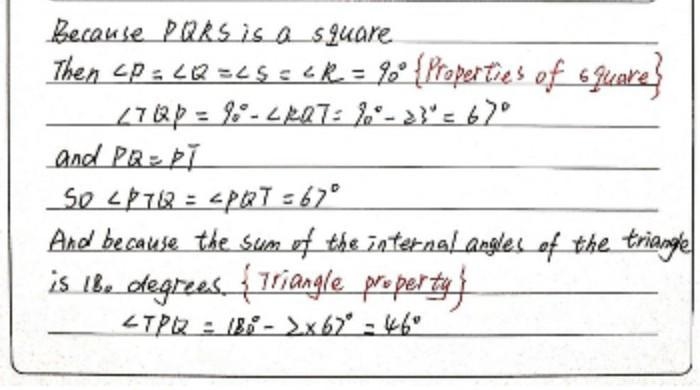 Because PQRS is a square
Then ∠P = ∠Q = ∠S = ∠R = 90° {Properties of square}
∠TQP = 90° - ∠RQT = 90° - 23° = 67°
and PQ = PT
SO ∠PTQ = ∠PQT = 67°
And because the sum of the internal angles of the triangle
is 180 degrees. {Triangle property}
∠TPQ = 180° - 2×67° = 46°